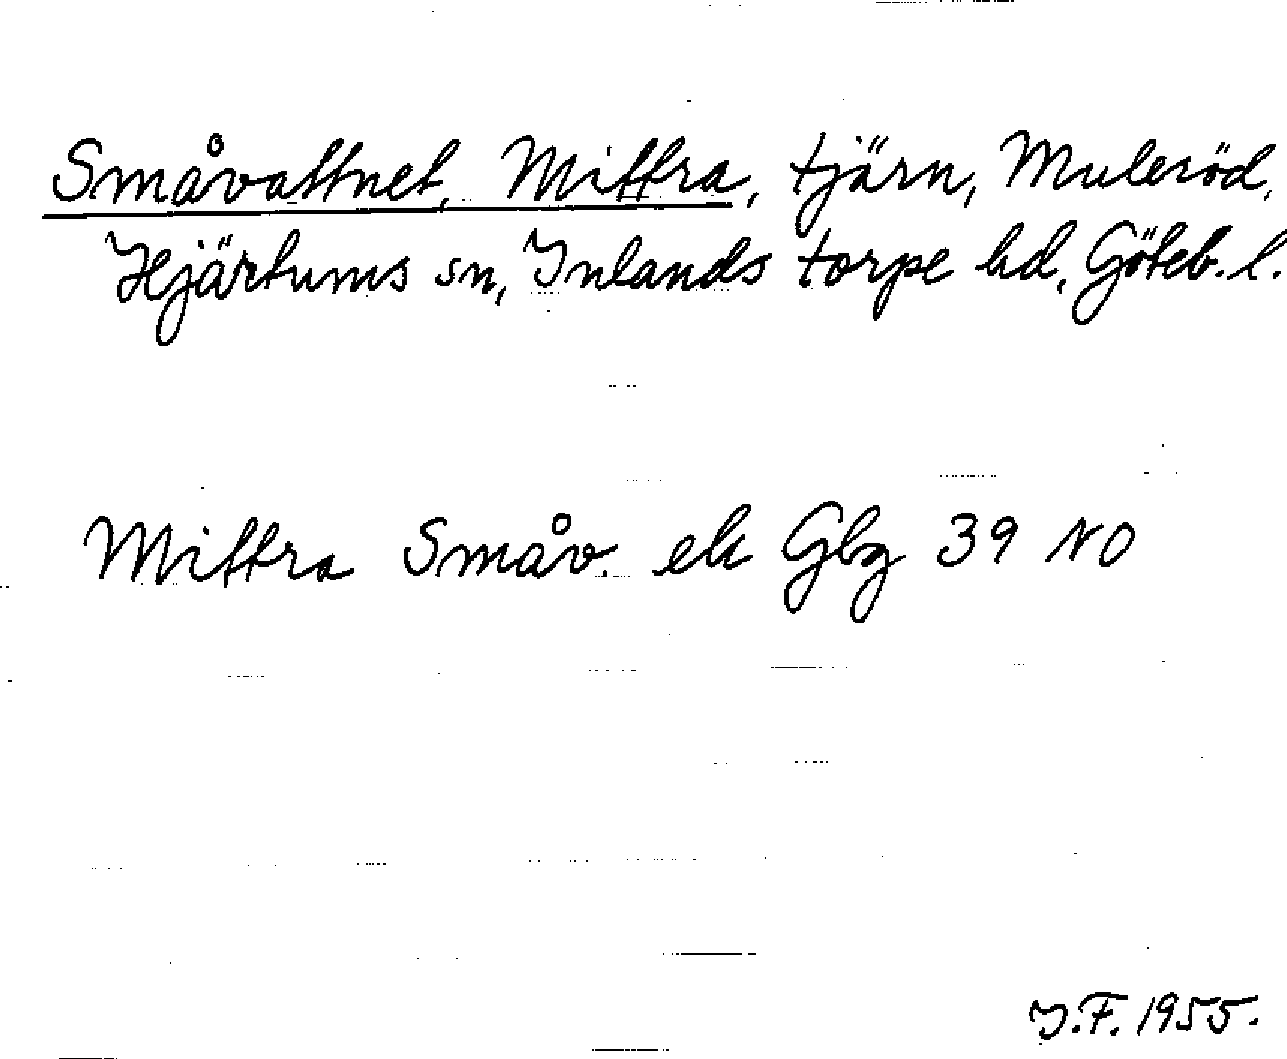 Småvattnet, Mittra, tjärn, Muleröd,
Hjärtums sn, Inlands torpe hd, Göteb. l.
Mittra Småv. ek Gbg 39 NO
J.F. 1955.